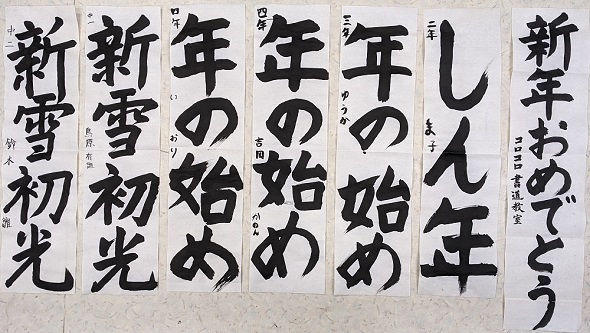 新年おめでとう
コロコロ書道教室
しん年
二年
年の始め
三年
ゆうか
年の始め
四年
吉田
かのん
年の始め
四年
いおり
新雪初光
中一
新雪初光
中二
鈴木